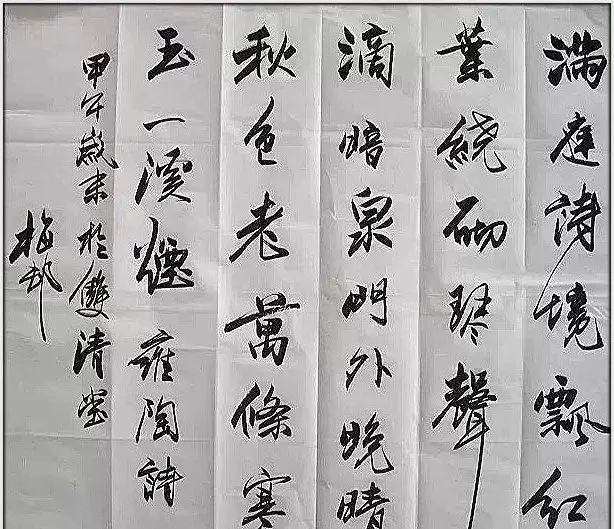 滿庭詩境飄紅
葉繞砌琴聲
滴暗泉門外晚晴
秋色老萬條寒
玉一溪煙雍陶詩
甲午歲末於雙清堂
梅邨